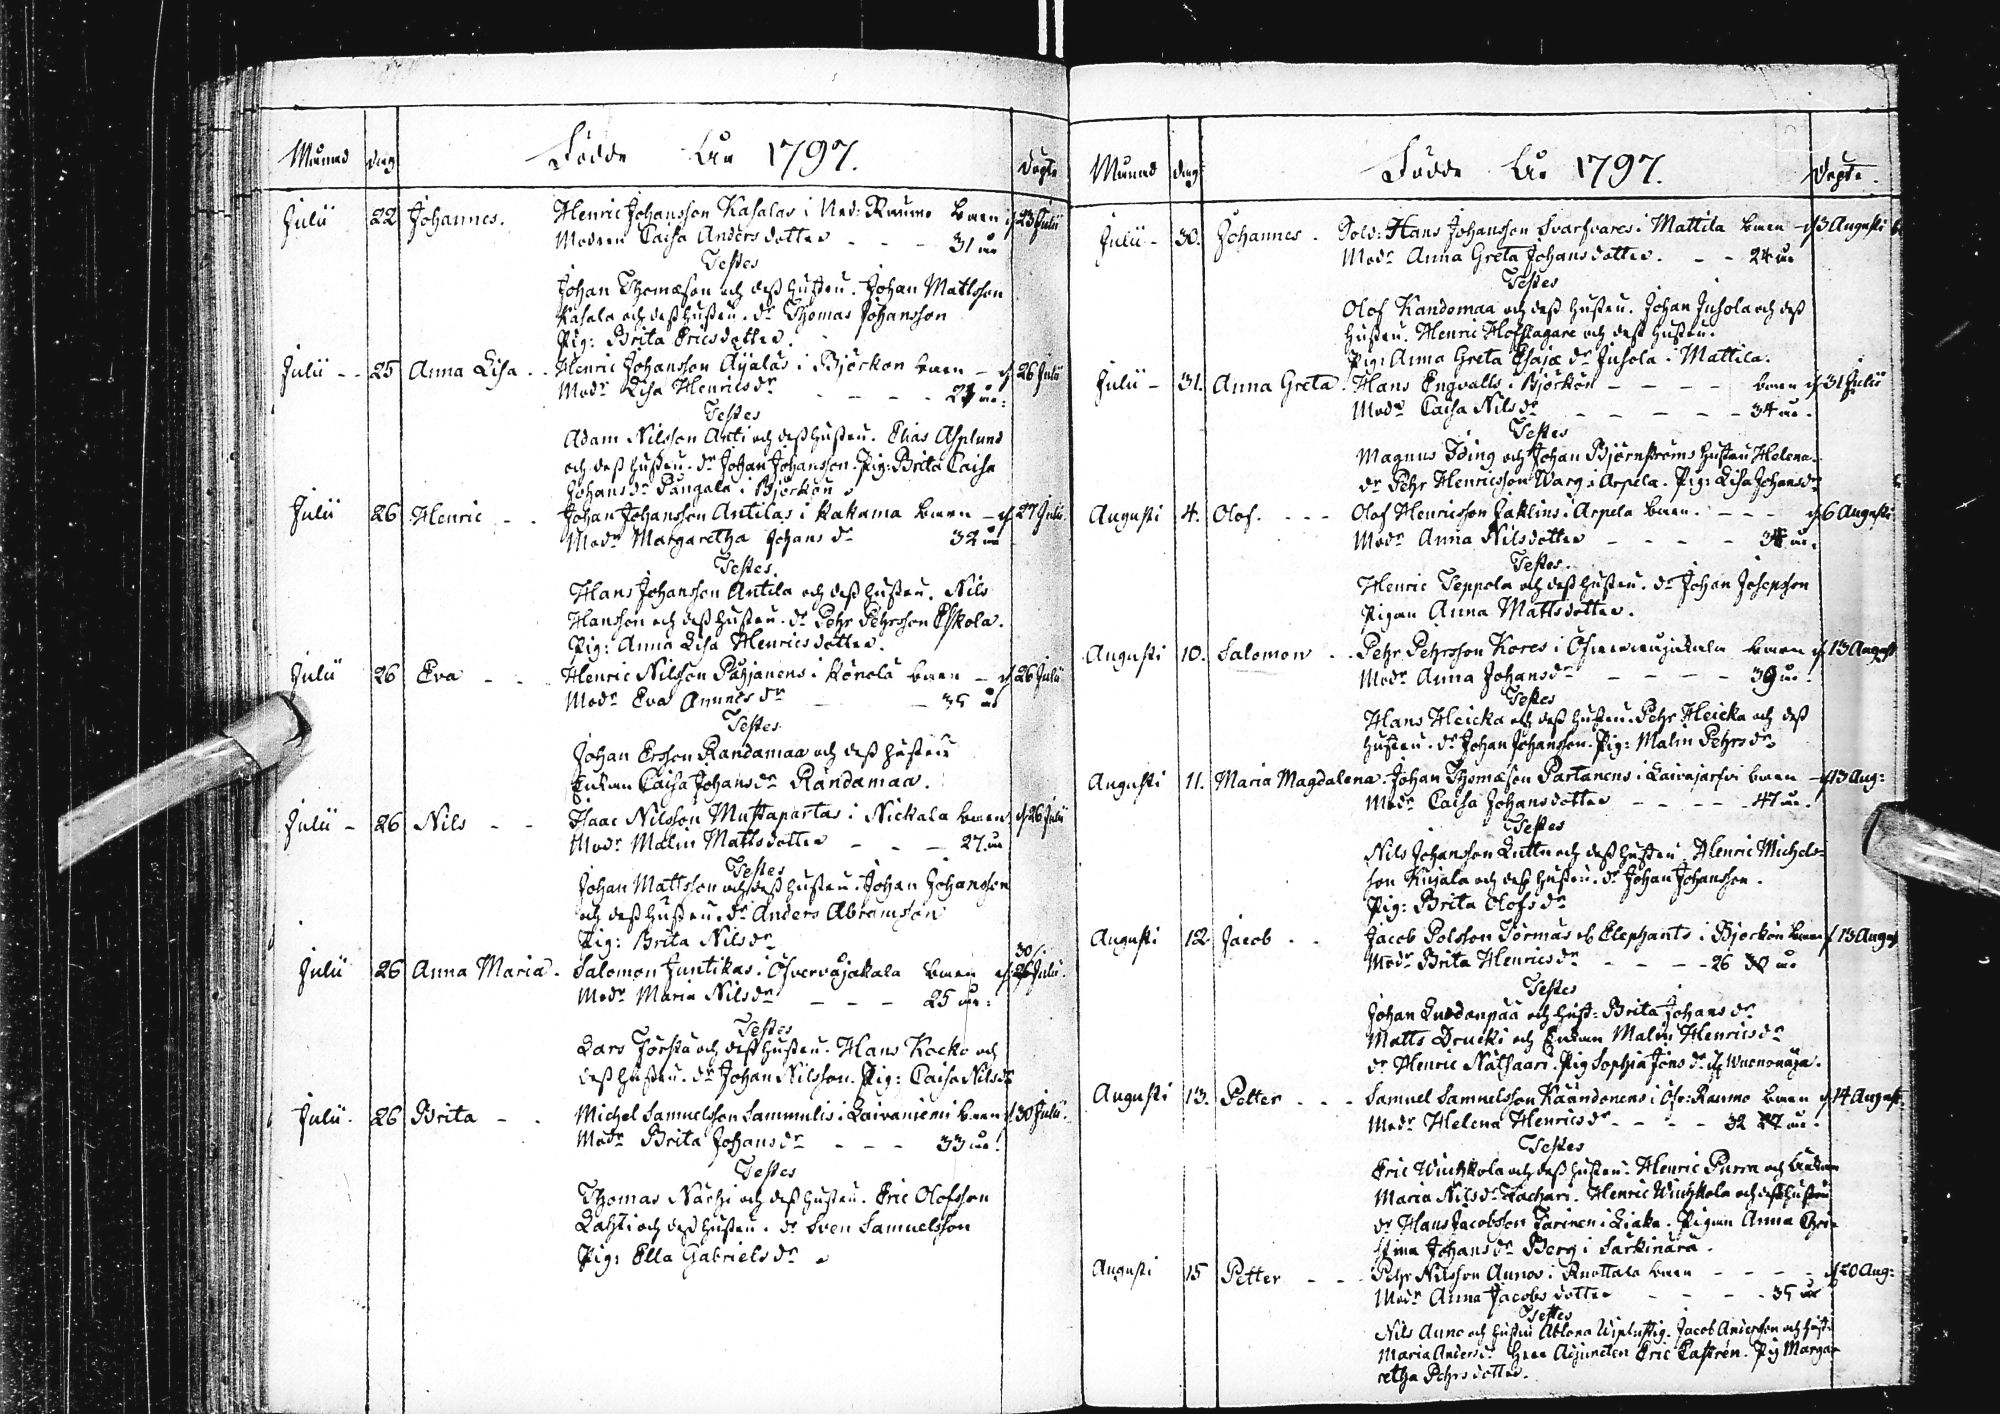 Månad Dag Födde År 1797. Döpte
Julii 22 Johannes. Henric Johansson Kasalas i Ned: Raumo barn d 23 Julii
Modren Caisa Andersdotter - - - 31 år
Testes
Johan Thomæson och dess hustru. Johan Mattsson
Kasala och dess hustru. dr Thomas Johansson
Pig: Brita Ericsdotter.
Julii - - 25 Anna Lisa - - Henric Johansson Ayälas i Björkön barn - d 26 Julii
Modr Lisa Henricsdr - - - - år:
Testes
Adam Nilsson Anti och dess hustru. Elias Asplund
och dess hustru. dr Johan Johansson. Pig: Brita Caisa
Johansdr Pangala i Björkön.
Julii 26 Henric - - Johan Johansson Antilas i Kakama barn - d 27 Julii
Modr Margaretha Johansdr 32 år
Testes
Hans Johansson Antila och dess hustru. Nils
Hansson och dess hustru. dr Pehr Pehrsson Eskola.
Pig: Anna Lisa Henricsdotter.
Julii 26 Eva - - Henric Nilsson Päyjänens i Könölä barn - d 26 Julii
Modr Eva Amundsdr - - 35 år
Testes
Johan Ersson Randamaa och dess hustru
Enkan Caisa Johansdr Randamaa.
Julii - 26 Nils - - Isaac Nilsson Mustapartas i Nickala barn d 26 Julii
Modr Malin Mattsdotter - - - 27. år
Testes
Johan Mattsson och dess hustru. Johan Johansson
och dess hustru. dr Anders Abramsson
Pig: Brita Nilsdr
Julii 26 Anna Maria. Salomon Juntikas i Öfvervojakala barn d 30/. 26 Julii.
Modr Maria Nilsdr - - - 25 år:
Testes
Lars Torsta och dess hustru. Hans Kocko och
dess hustru. dr Johan Nilsson. Pig: Caisa Nilsdr
Julii. 26 Brita - - Michel Samuelsson Sammulis i Laivaniemi barn d 30 Julii.
Modr Brita Johansdr - - - 33 år.
Testes
Thomas Närhi och dess hustru. Eric Olofsson
Lahti och dess hustru. dr Sven Samuelsson
Pig: Ella Gabrielsdr.
Månad Dag Födde År 1797. Döpte.
Julii - 30. Johannes. Sold: Hans Johansson Svarfvares i Mattila barn - d 3 Augusti
Modr Anna Greta Johansdotter. - - 24 år
Testes
Olof Kandomaa och dess hustru. Johan Juhola och dess
hustru. Henric Hofslagare och dess hustru.
Pig: Anna Greta Esajæ dr Juhola i Mattila.
Julii - 31. Anna Greta. Hans Engvalls i Björkön - - - - barn d 31 Julii
Modr Caisa Nilsdr - - - - 34 år.
Testes
Magnus Iding och Johan Björnströms hustru Helena.
dr Pehr Henricsson Warg i Arpela. Pig: Lisa Johansdr
Augusti 4. Olof. - - - Olof Henricsson Jäklins i Arpela barn. - - - d 6 Augusti
Modr Anna Nilsdotter - - - - år.
Testes.
Henric Teppola och dess hustru. dr Johan Josepsson
Pigan Anna Mattsdotter.
Augusti 10. Salomon - - Pehr Pehrsson Kores i Öfvervojakala barn d 13 August
Modr Anna Johansdr - - - - 39 år.
Testes
Hans Heicka och dess hustru. Pehr Heicka och dess
hustru. dr Johan Johansson. Pig: Malin Pehrsdr
Augusti 11. Maria Magdalena. Johan Thomæson Partanens i Laivajarfvi barn - d 13 Aug:
Modr Caisa Johansdotter - - - - 47 år.
Testes
Nils Johansson Luttu och dess hustru. Henric Michels-
son Kujala och dess hustru. dr Johan Johansson.
Pig: Brita Olofsdr
Augusti 12 Jacob - - Jacob Polsson Törmäs eb Elephants i Björkön barn d 13 August
Modr Brita Henricsdr - - - - 26 30 år
Testes
Johan Luodonpää och hust: Brita Johansdr
Matts Drucki och Enkan Malin Henricsdr
dr Henric Nätsaari. Pig Sophia Jönsdr
Augusti 13. Petter - - - Samuel Samuelsson Käändonens i Öfv: Raumo barn d 14 August
Modr Helena Henricsdr - - - - 32 27 år.
Testes
Eric Wuohkola och dess hustru. Henric Purra och Enkan
Maria Nilsdr Zachari. Henric Wuohkola och dess hustru
dr Hans Jacobsson Tarinen i Liaka. Pigan Anna Chri-
stina Johansdr Berg i Särkinärä.
Augusti 15 Petter - - - Pehr Nilsson Aunos i Ruottala barn - - - - d 20 Aug:
Modr Anna Jacobsdotter - - - - 35 år
Testes
Nils Auno och hustru Ablona Wiplustig. Jacob Andersson och hustr
Maria Andersdr Herr Adjuncten Eric Castrén. Pig Marga-
retha Pehrsdotter.